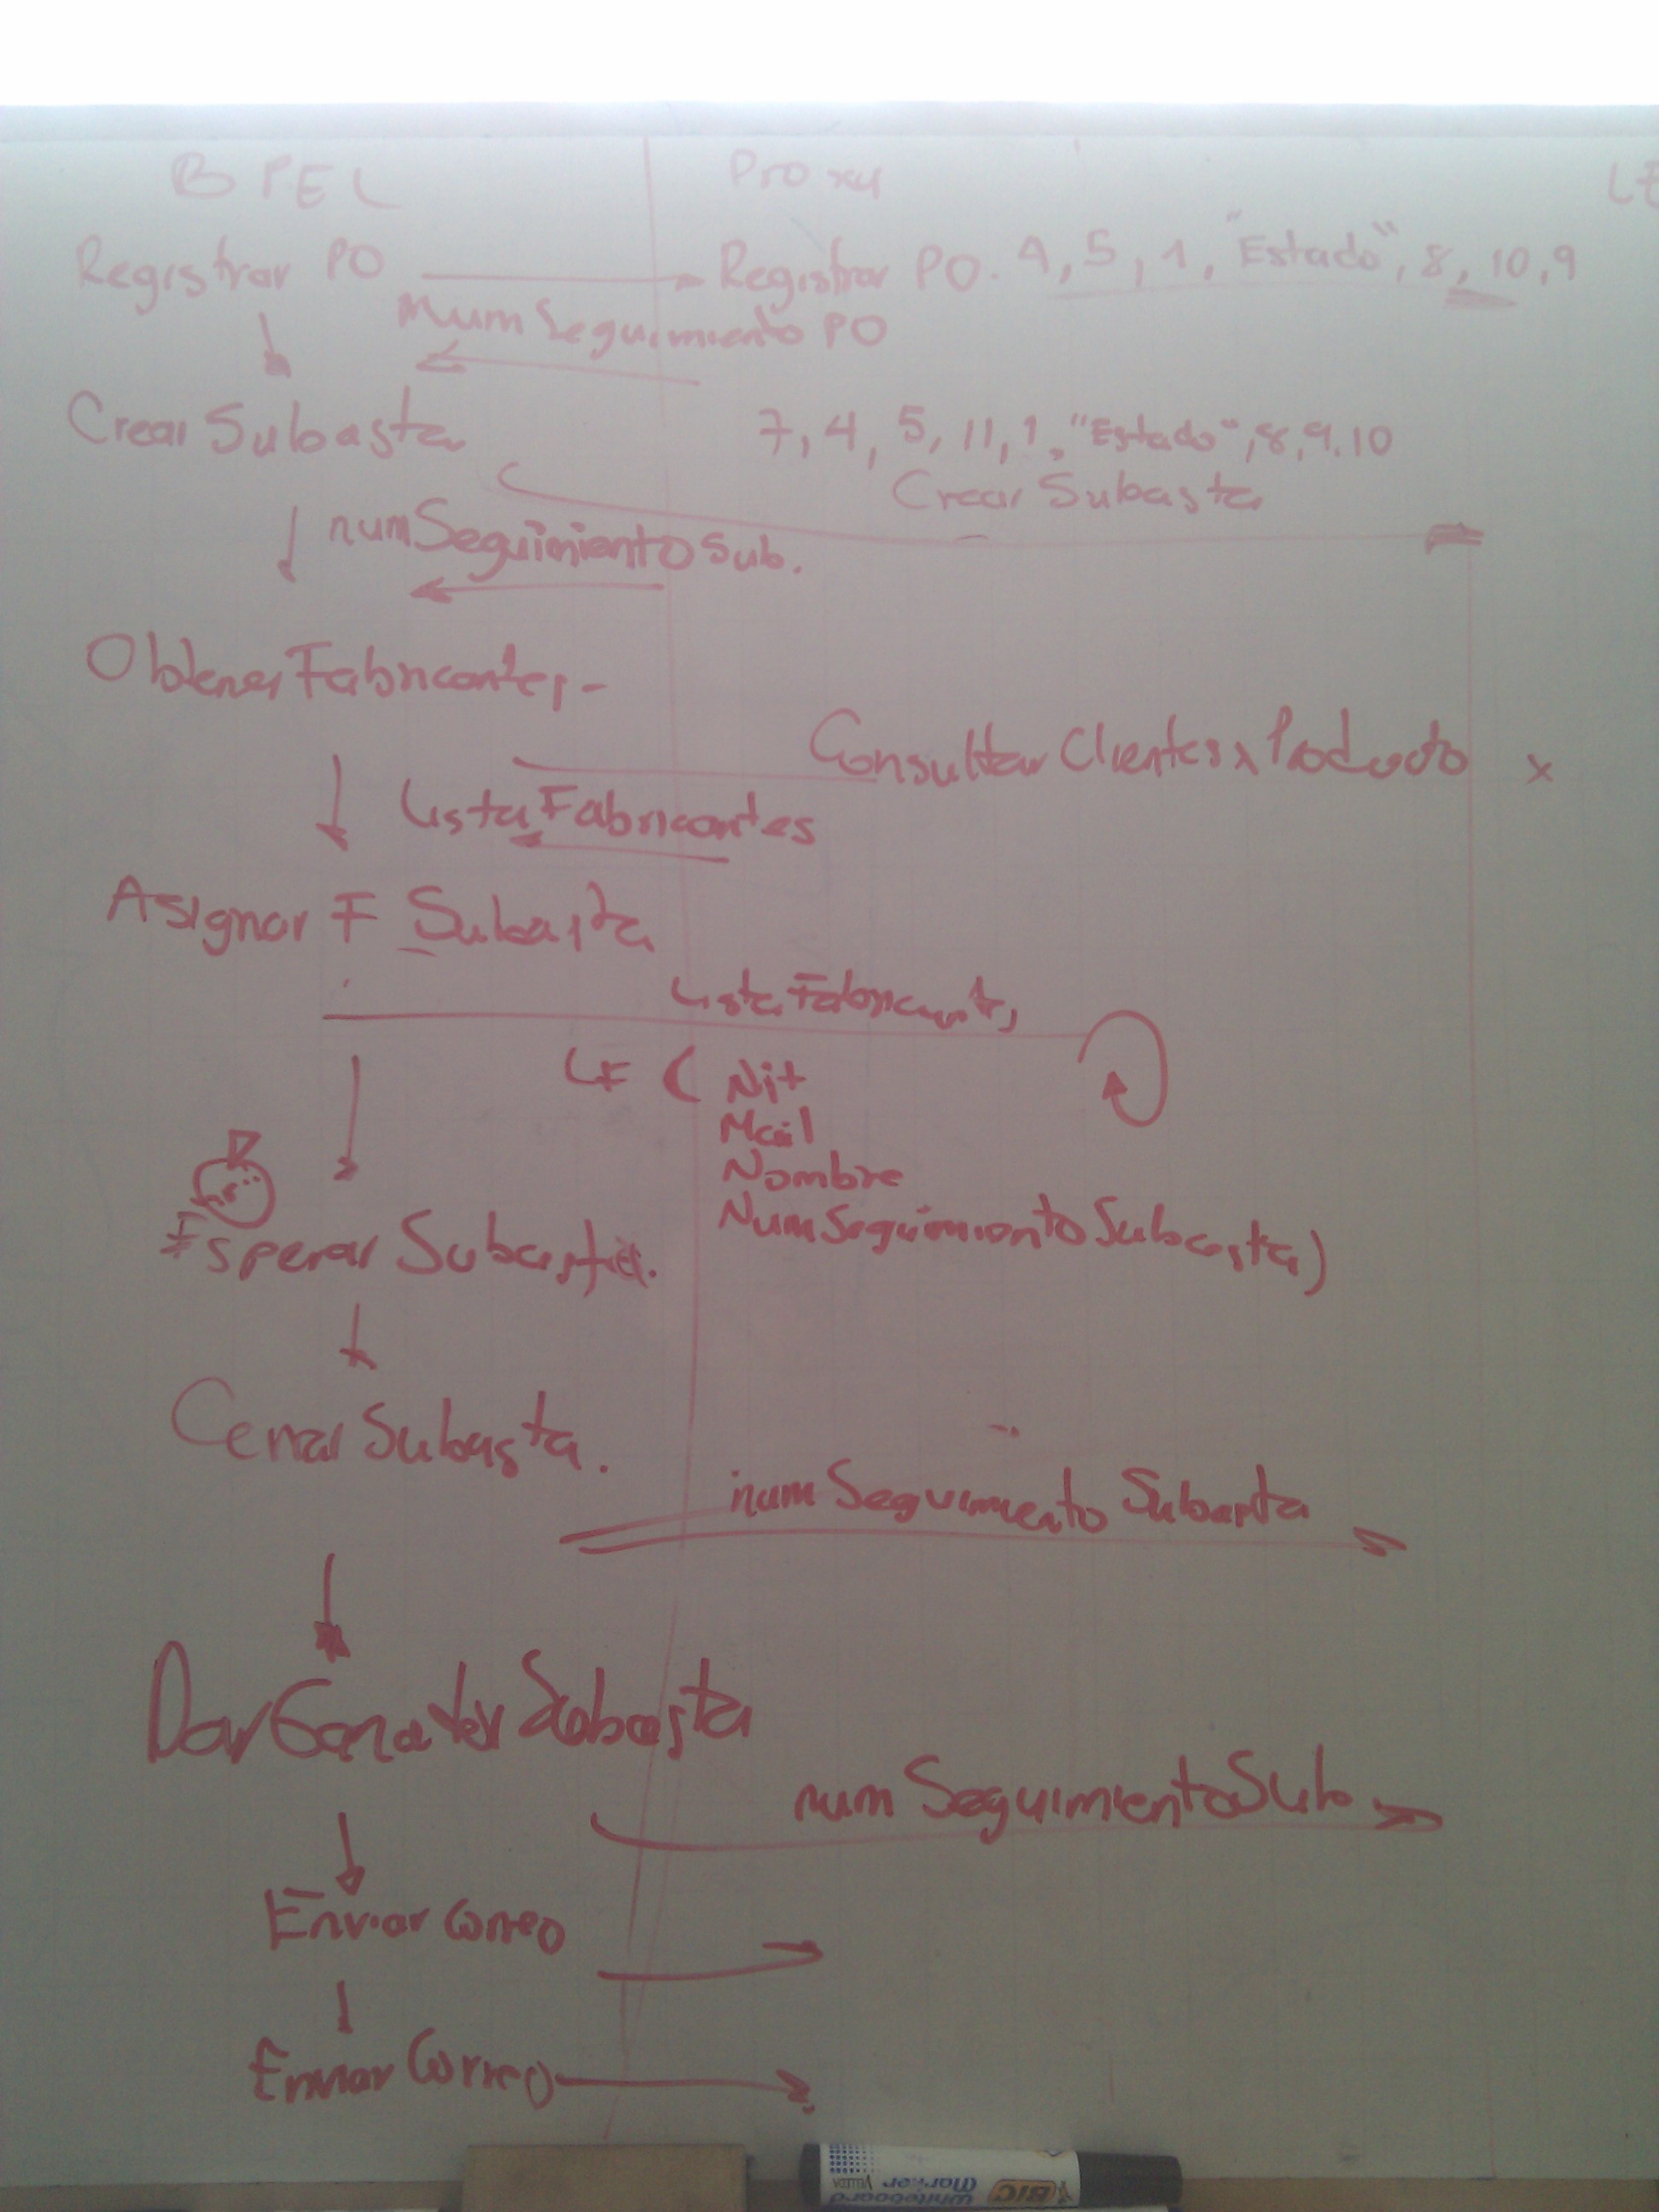 BPEL Proxy
Registrar PO Registrar PO. 4, 5, 1, "Estado", 8, 10, 9
Num Seguimiento PO
Crear Subasta 7, 4, 5, 11, 1, "Estado", 8, 9. 10
Crear Subasta
numSeguimiento Sub.
Obtener Fabricantes -
Consultar Clientes x Producto x
Lista Fabricantes
Asignar F_Subasta
Lista Fabricantes
LF ( Nit
Mail
Nombre
NumSeguimientoSubasta)
Esperar Subasta.
Cerrar Subasta.
num Seguimiento Subasta
DarGanadorSubasta
num SeguimientoSub.
Enviar Correo
Enviar Correo
BIC
Whiteboard
Marker VELLEDA